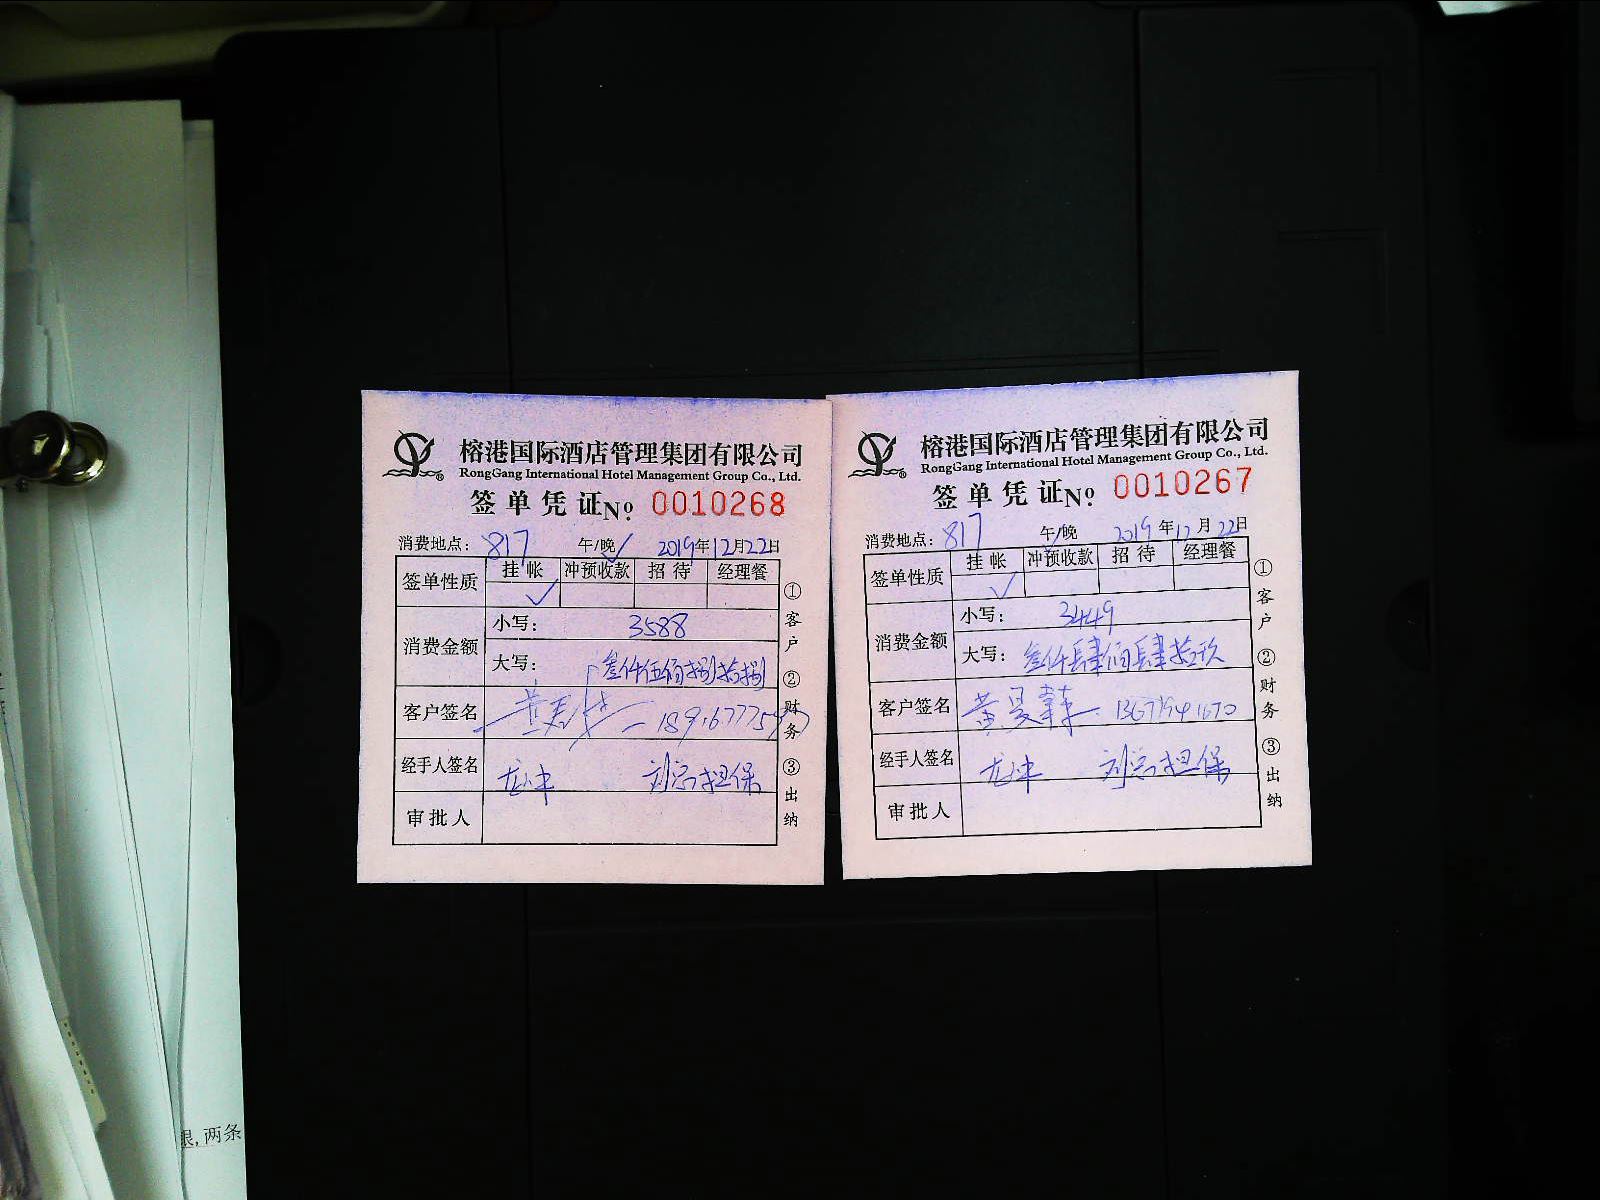 榕港国际酒店管理集团有限公司
RongGang International Hotel Management Group Co., Ltd.
签单凭证 No. 0010268
消费地点: 817 午/晚 2019年12月22日
签单性质 挂帐 冲预收款 招待 经理餐
消费金额 小写: 3588
大写: 叁仟伍佰捌拾捌
客户签名
经手人签名 刘总担保
审批人
①客户 ②财务 ③出纳
榕港国际酒店管理集团有限公司
RongGang International Hotel Management Group Co., Ltd.
签单凭证 No. 0010267
消费地点: 817 午/晚 2019年12月22日
签单性质 挂帐 冲预收款 招待 经理餐
消费金额 小写: 3449
大写: 叁仟肆佰肆拾玖
客户签名 黄
经手人签名 刘总担保
审批人
①客户 ②财务 ③出纳
限,两条